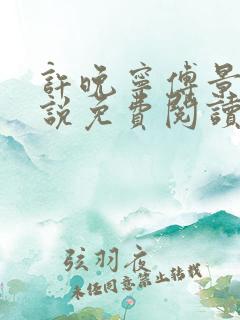 許晚寧傅景
說免費閱讀
弦羽夜
未經同意禁止轉載